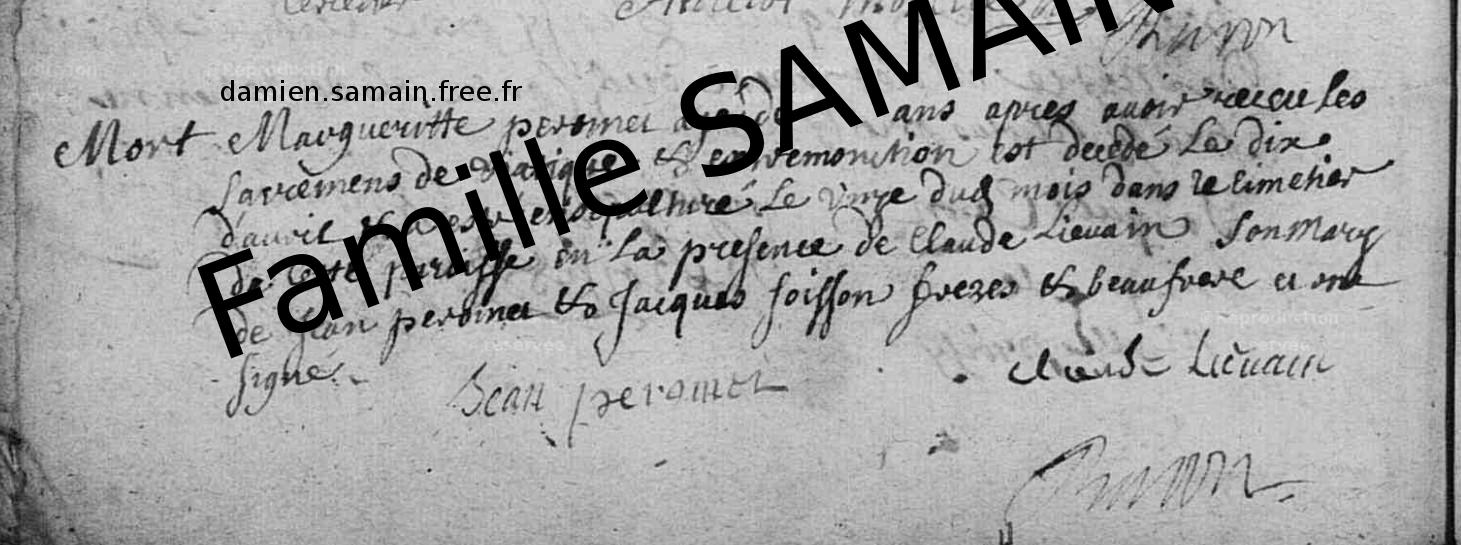 damien.samain.free.fr
Famille SAMAIN
Mort Margueritte peromet ans apres avoir receu les
sacremens de viatique & extremonction est decedé le dix
d'avril & a esté ensepulturé le unze dud mois dans le cimetier
de cette paroisse en la presence de Claude Lievain son mary
de Jean peromet & Jacques soisson freres & beaufrere et ont
signé
Jean peromet
claude Lievain